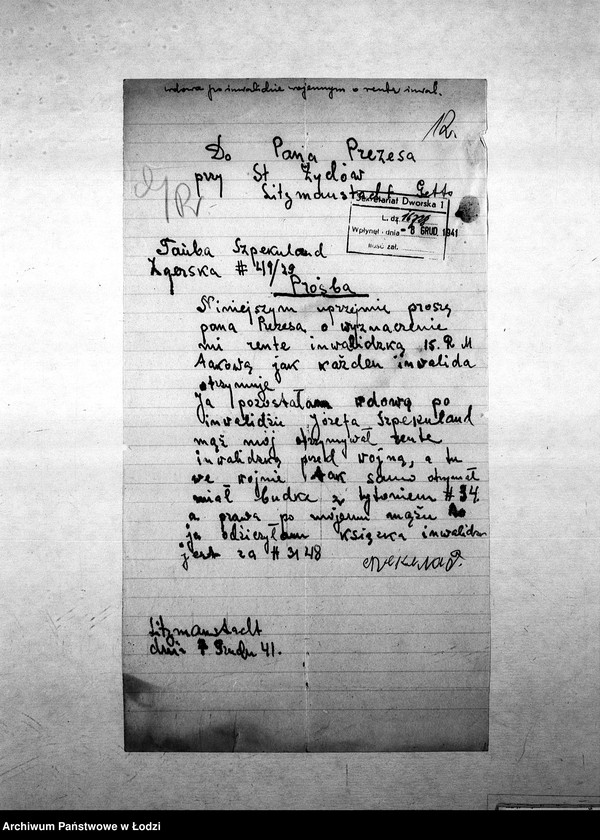 wdowa po inwalidzie wojennym o rentę inwal.
12.
Do Pana Prezesa
przy St Żydów
Litzmanstadt Getto
Sekretariat Dworska 1
L. dz.
Wpłynął dnia - 8 GRUD. 1941
Ilość zał.
Tauba Szpekuland
Zgerska # 49/29
Prośba
Niniejszym uprzejmie proszę
pana Prezesa o wyznaczenie
mi rente inwalidzką 15. R M
takową jak każden inwalida
otrzymuje
Ja pozostałam wdową po
inwalidzie Józefa Szpekuland
mąż mój otrzymywał rente
inwalidzką przed wojną, a tu
we wojnie tak samo otrymał
miał Budka z tytoniem # 34.
a prawa po mojemu mężu
ja odziczyłam książka inwalidz
jest za # 3148
Litzmanstadt
dnia 7 Grudn 41.
Archiwum Państwowe w Łodzi